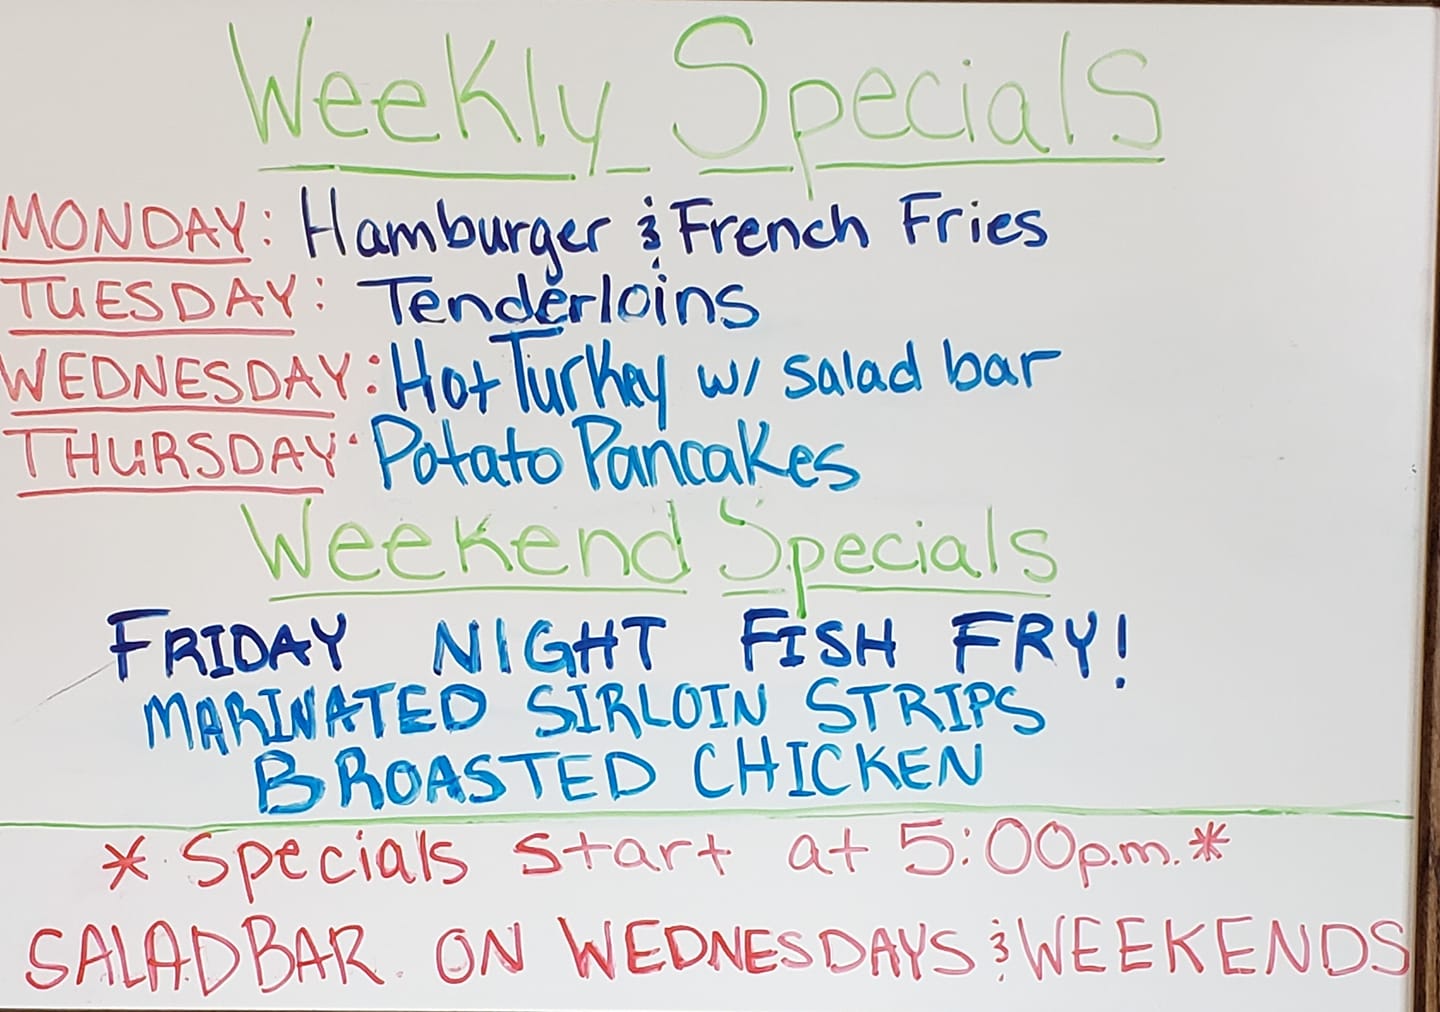 Weekly Specials
MONDAY: Hamburger & French Fries
TUESDAY: Tenderloins
WEDNESDAY: Hot Turkey w/ salad bar
THURSDAY: Potato Pancakes
Weekend Specials
FRIDAY NIGHT FISH FRY!
MARINATED SIRLOIN STRIPS
BROASTED CHICKEN
* Specials start at 5:00p.m. *
SALAD BAR ON WEDNESDAYS & WEEKENDS